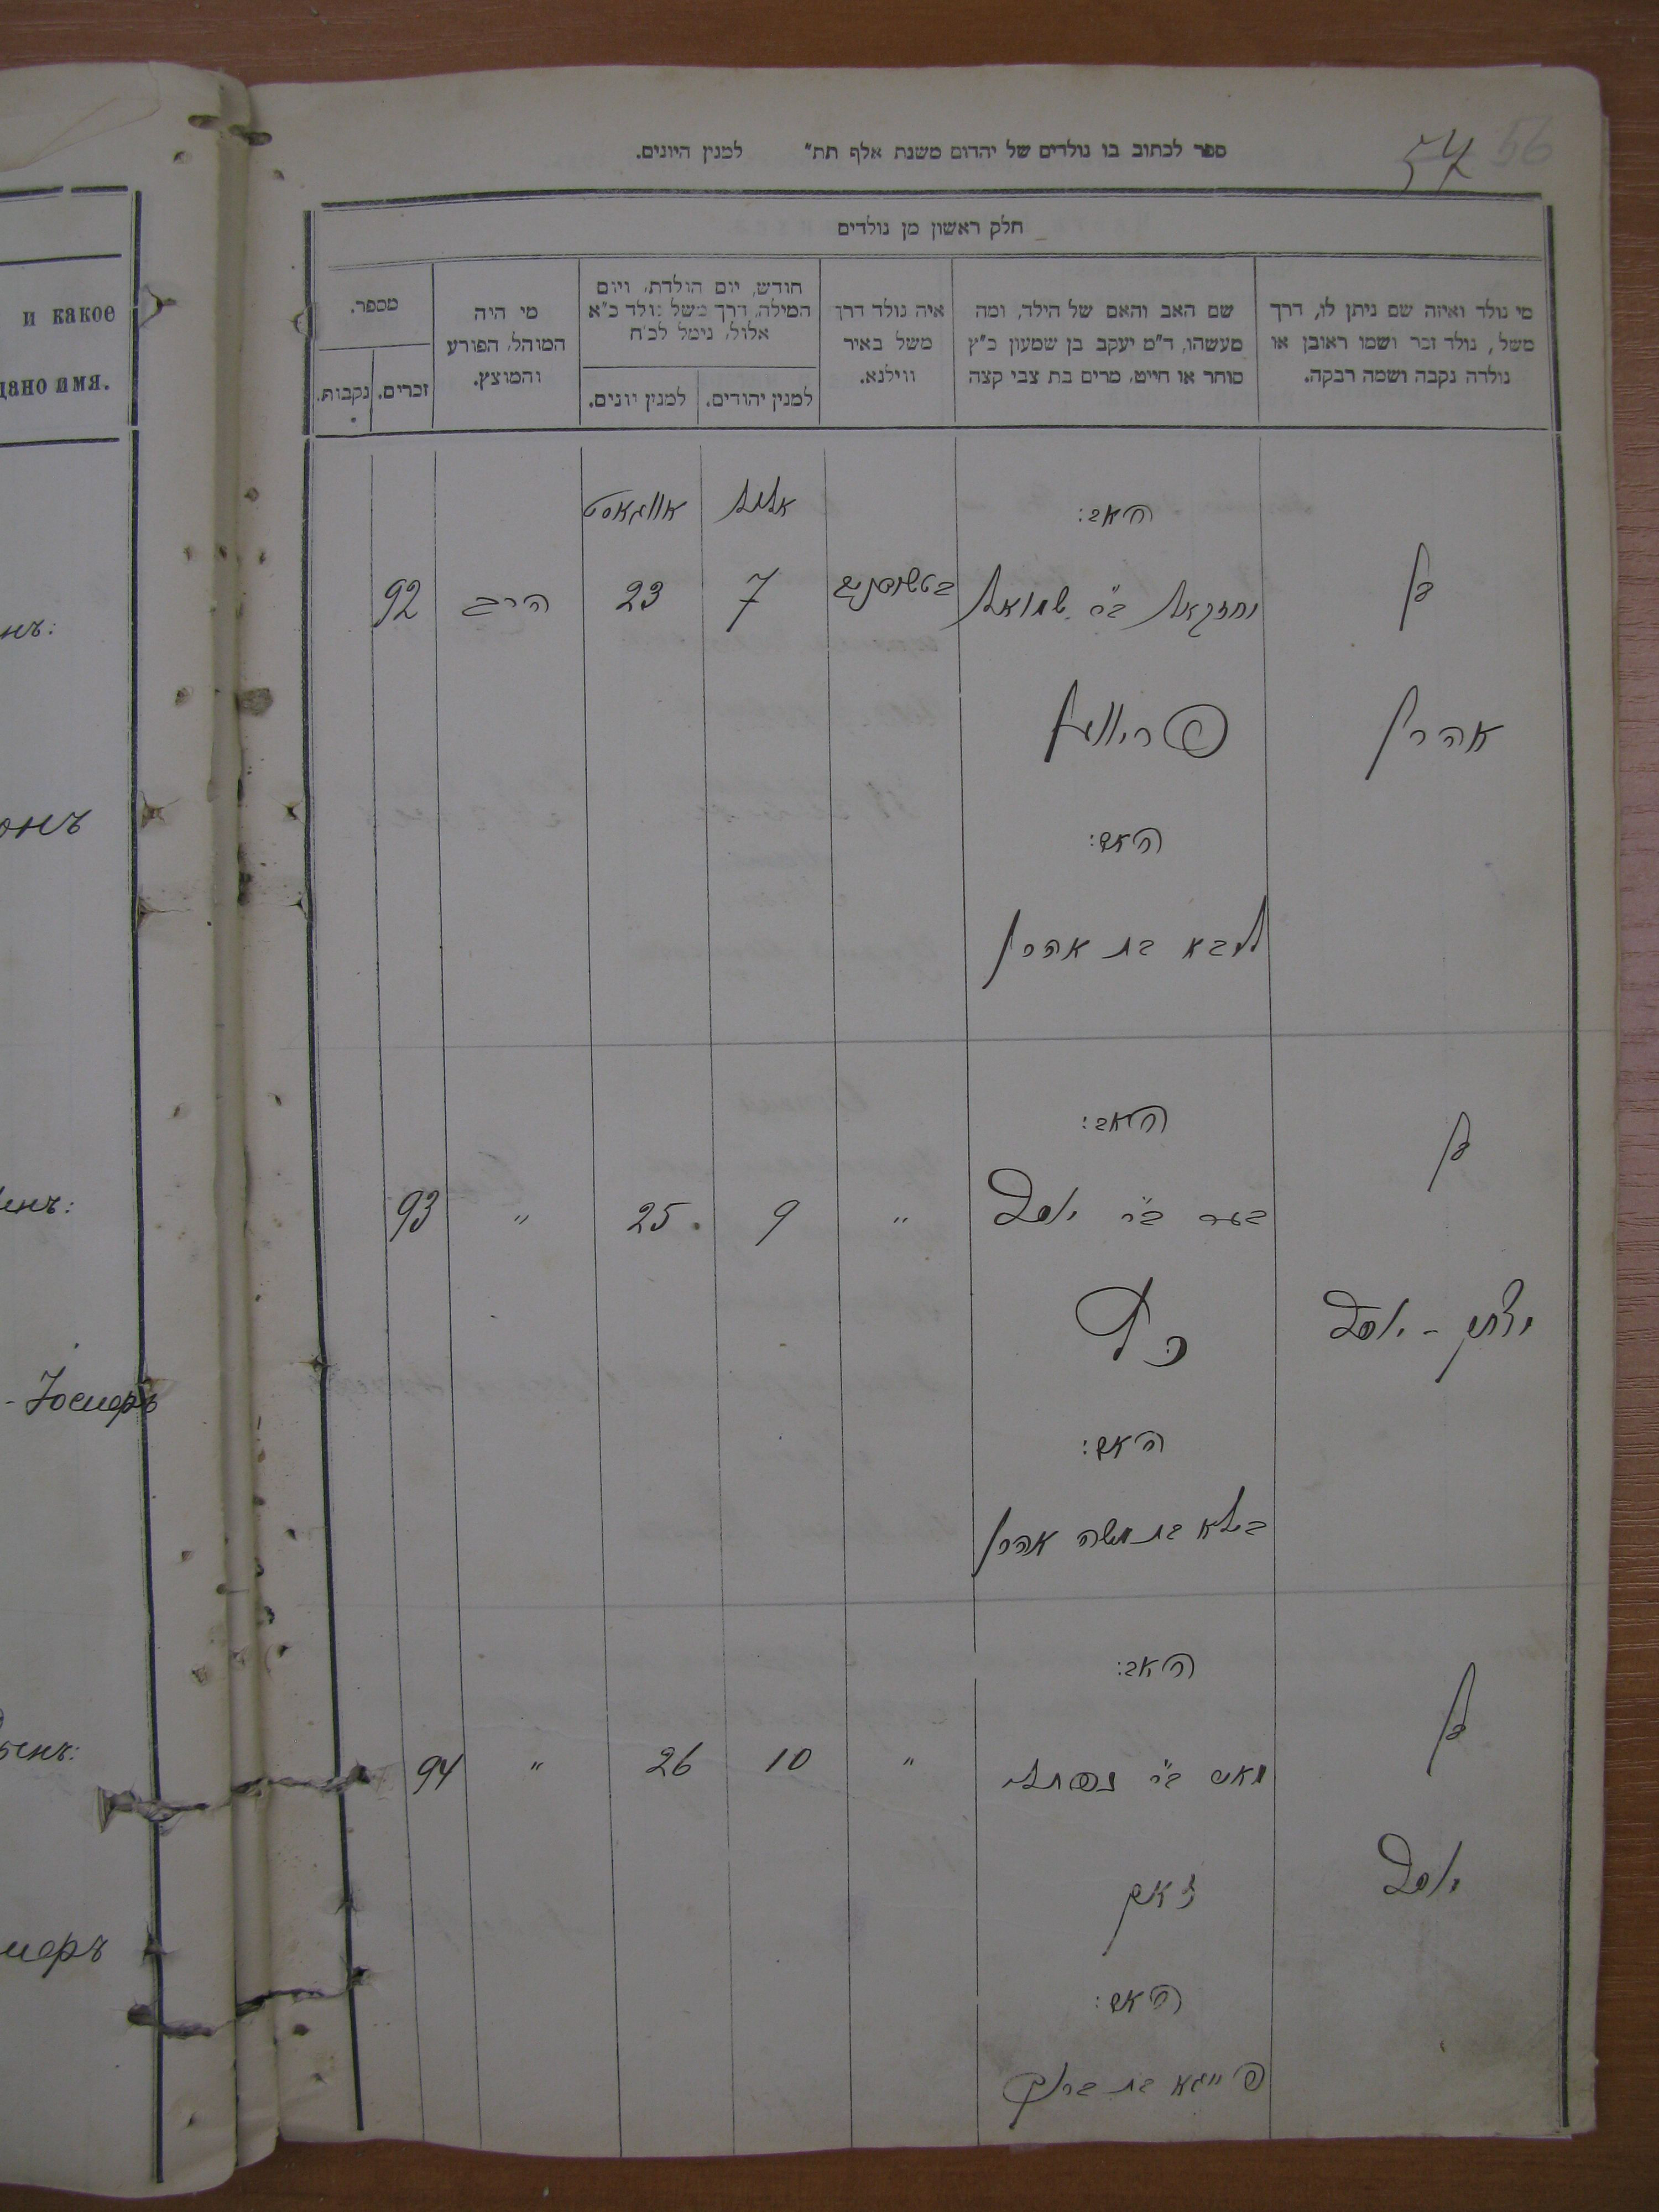 57 56
ספר לכתוב בו נולדים של יהדום משנת אלף תת״ למנין היונים.
חלק ראשון מן נולדים
מי נולד ואיזה שם ניתן לו, דרך
משל, נולד זכר ושמו ראובן או
נולדה נקבה ושמה רבקה.
שם האב והאם של הילד, ומה
מעשהו, ד״מ יעקב בן שמעון כ״ץ
סוחר או חייט, מרים בת צבי קצה
איה נולד דרך
משל באיר
ווילנא.
חודש, יום הולדת, ויום
המילה, דרך משל נולד כ״א
אלול, נימל לכ״ח
למנין יהודים.
למנין יונים.
מי היה
המוהל, הפורע
והמוצץ.
מספר.
זכרים.
נקבות.
и какое
дано имя.
האב:
אלול
אויגאסט
בן
יחזקאל ב״ר שמואל
7
23
הרב
92
אהרן
האם:
ליבא בת אהרן
האב:
בן
בער ב״ר יוסף
״
9
25
״
93
יצחק - יוסף
כץ
האם:
ביילא בת משה אהרן
- Іосифъ
האב:
בן
ב״ר נפתלי
״
10
26
״
94
יוסף
זאק
האם:
פייגא בת ברוך